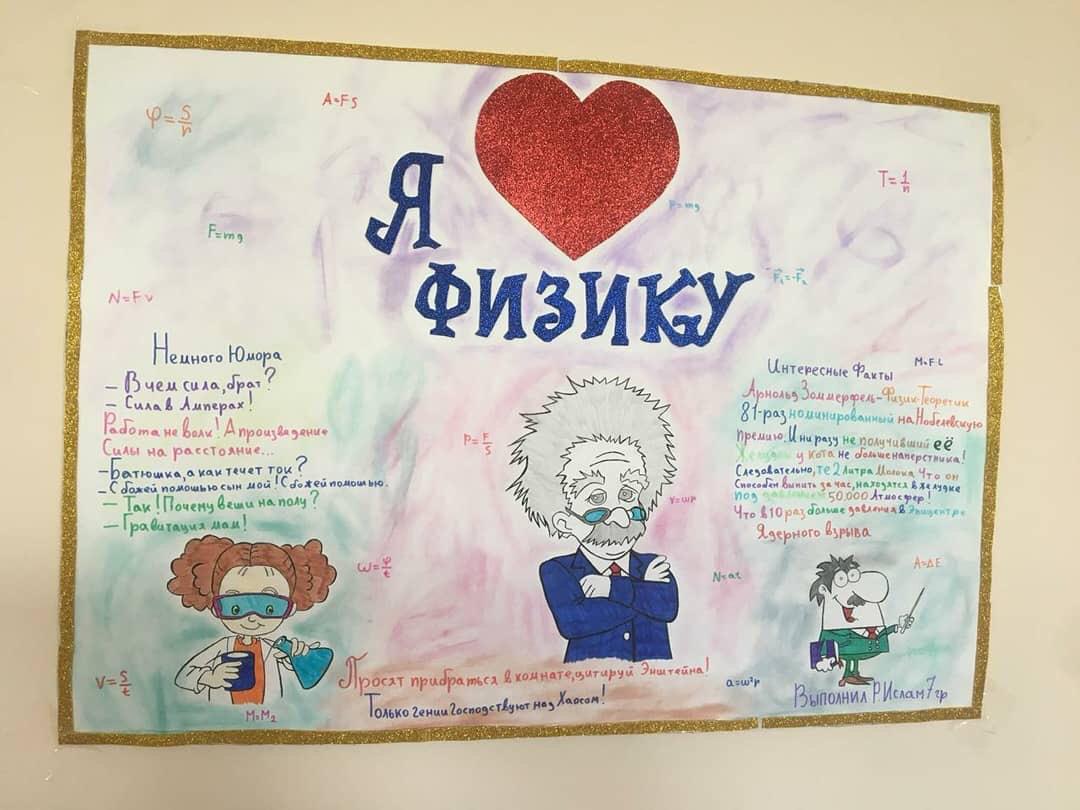 φ=S/r
A=FS
T=1/n
F=mg
P=mg
Я
ФИЗИКУ
F₁=-F₂
N=Fv
Немного Юмора
– В чем сила, брат?
– Сила в Амперах!
Работа не волк! А произведение
Силы на расстояние...
– Батюшка, а как течет ток?
– С божей помошью сын мой! С божей помошью.
– Так! Почему вещи на полу?
– Гравитация мам!
P=F/S
v=ωr
ω=φ/t
N=at
Интересные Факты
M=FL
Арнольд Зоммерфель-Физик-Теоретик
81-раз номинированный на Нобелевскую
премию. И ни разу не получивший её
Желудок у кота не больше наперстника!
Следовательно, те 2 литра Молока. Что он
Способен выпить за час, находятся в желудке
под давлением 50,000 Атмосфер!
Что в 10 раз больше давления в Эпицентре
Ядерного взрыва
A=ΔE
V=S/t
M=M₂
Просят прибраться в комнате, цитируй Энштейна!
Только гении Господствуют над Хаосом!
a=ω²r
Выполнил Р.Ислам 7гр